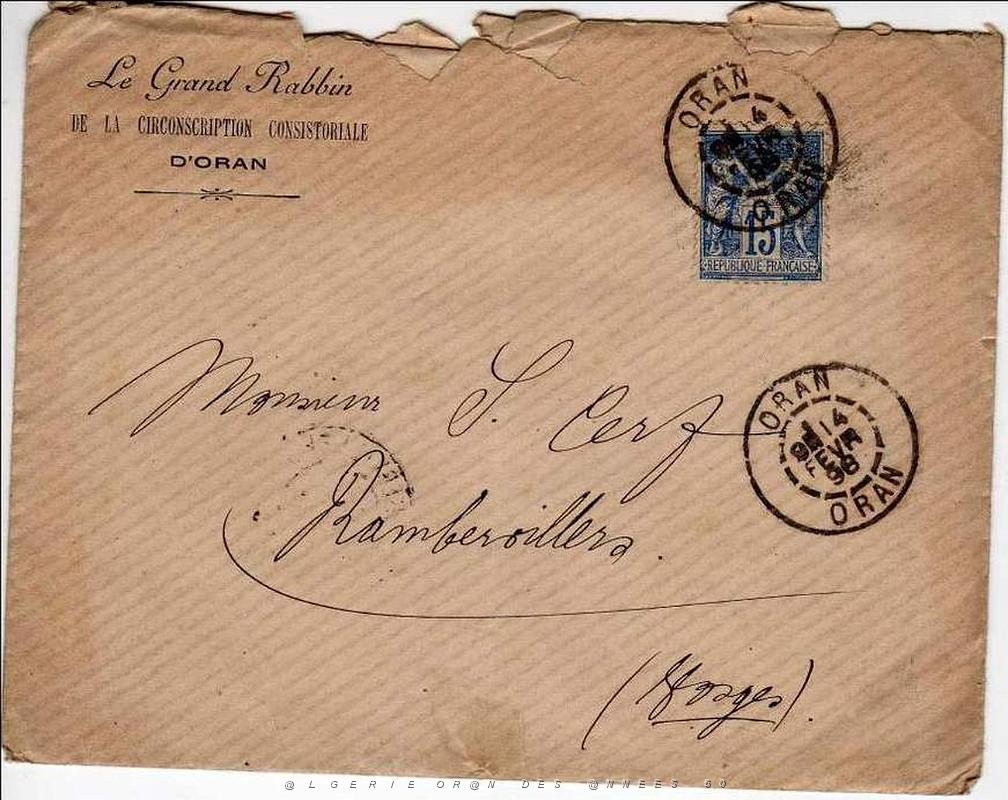 Le Grand Rabbin
DE LA CIRCONSCRIPTION CONSISTORIALE
D'ORAN
ORAN
ORAN
15
REPUBLIQUE FRANÇAISE
Monsieur S. Cerf
ORAN
14
FEVR
98
ORAN
Rambervillers.
(Vosges).
@LGERIE OR@N DES @NNEES 50